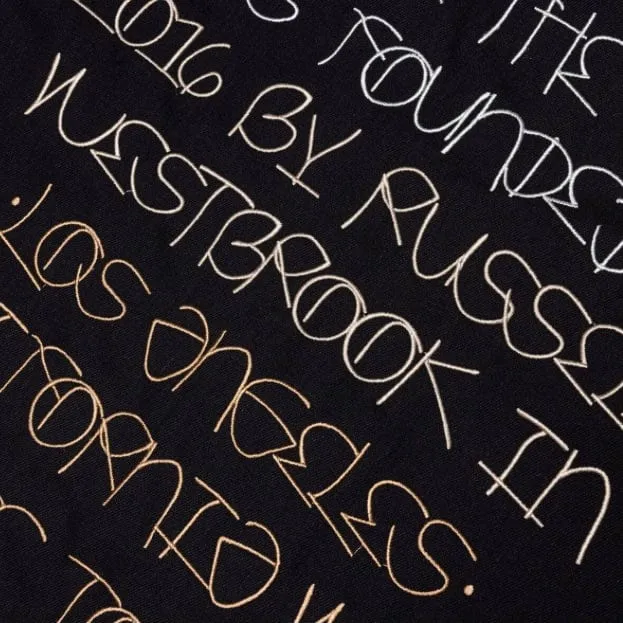 THE
FOUNDED
2016 BY RUSSE
WESTBROOK IN
·LOS ANGELES.
FORNIA